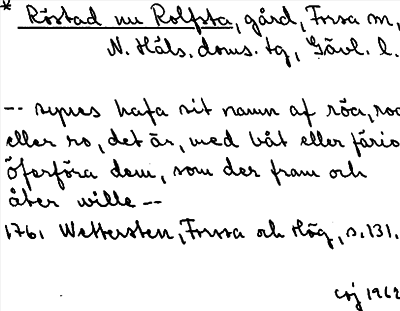 * Röstad nu Rolfsta, gård, Forsa sn,
N. Häls. doms. tg, Gävl. l.
-- synes hafa sit namn af röa, roa
eller ro, det är, med båt eller färja
öferföra dem, som der fram och
åter wille --
1761 Wettersten, Forssa och Hög, s. 131.
1962